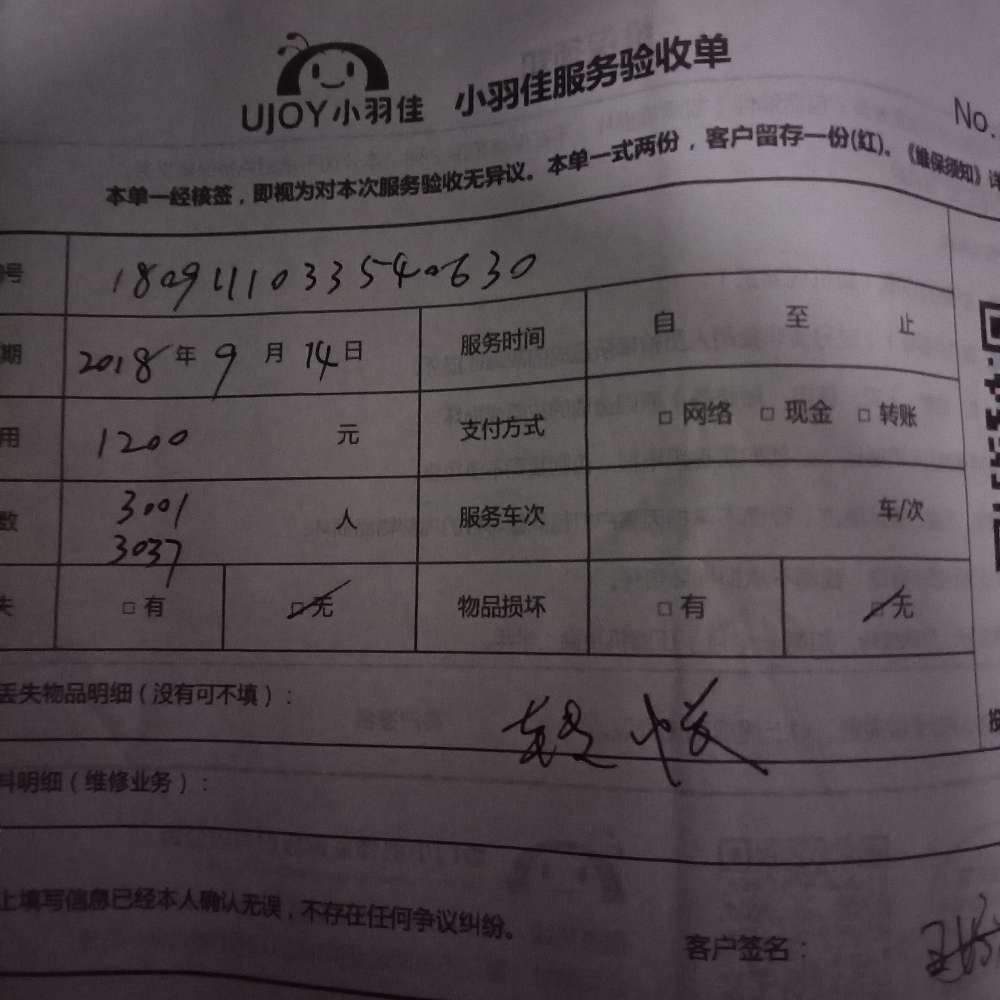 UJOY小羽佳 小羽佳服务验收单
No.
本单一经核签，即视为对本次服务验收无异议。本单一式两份，客户留存一份(红)。《维保须知》详
号 1809111033540630
期 2018年9月14日 服务时间 自 至 止
用 1200 元 支付方式 □ 网络 □ 现金 □ 转账
数 3001 人 服务车次 车/次
3037
失 □ 有 □ 无 物品损坏 □ 有 □ 无
丢失物品明细（没有可不填）：
料明细（维修业务）：
上填写信息已经本人确认无误，不存在任何争议纠纷。
客户签名：